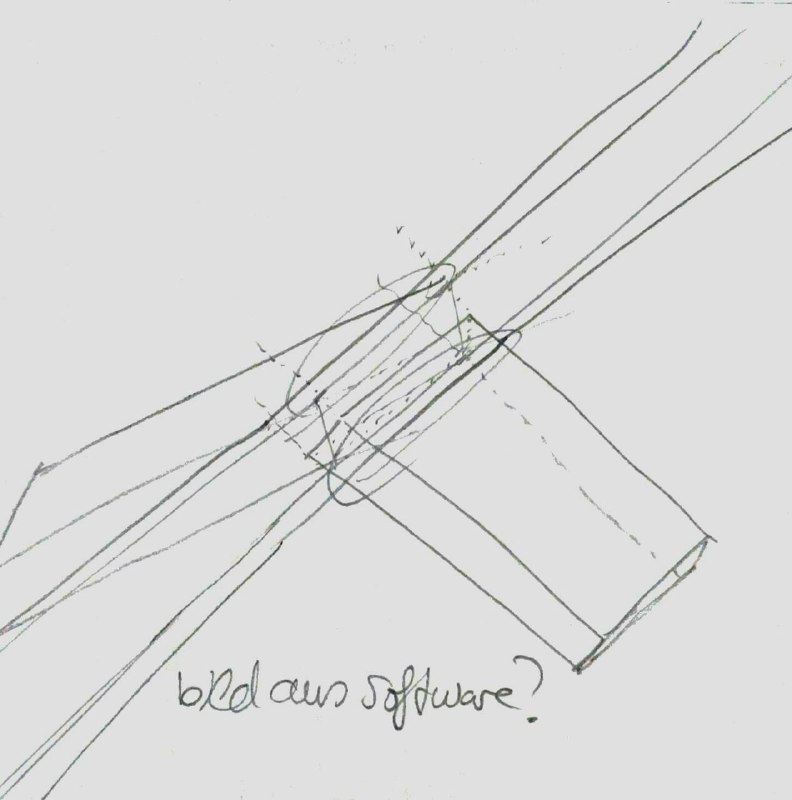 bild aus software?